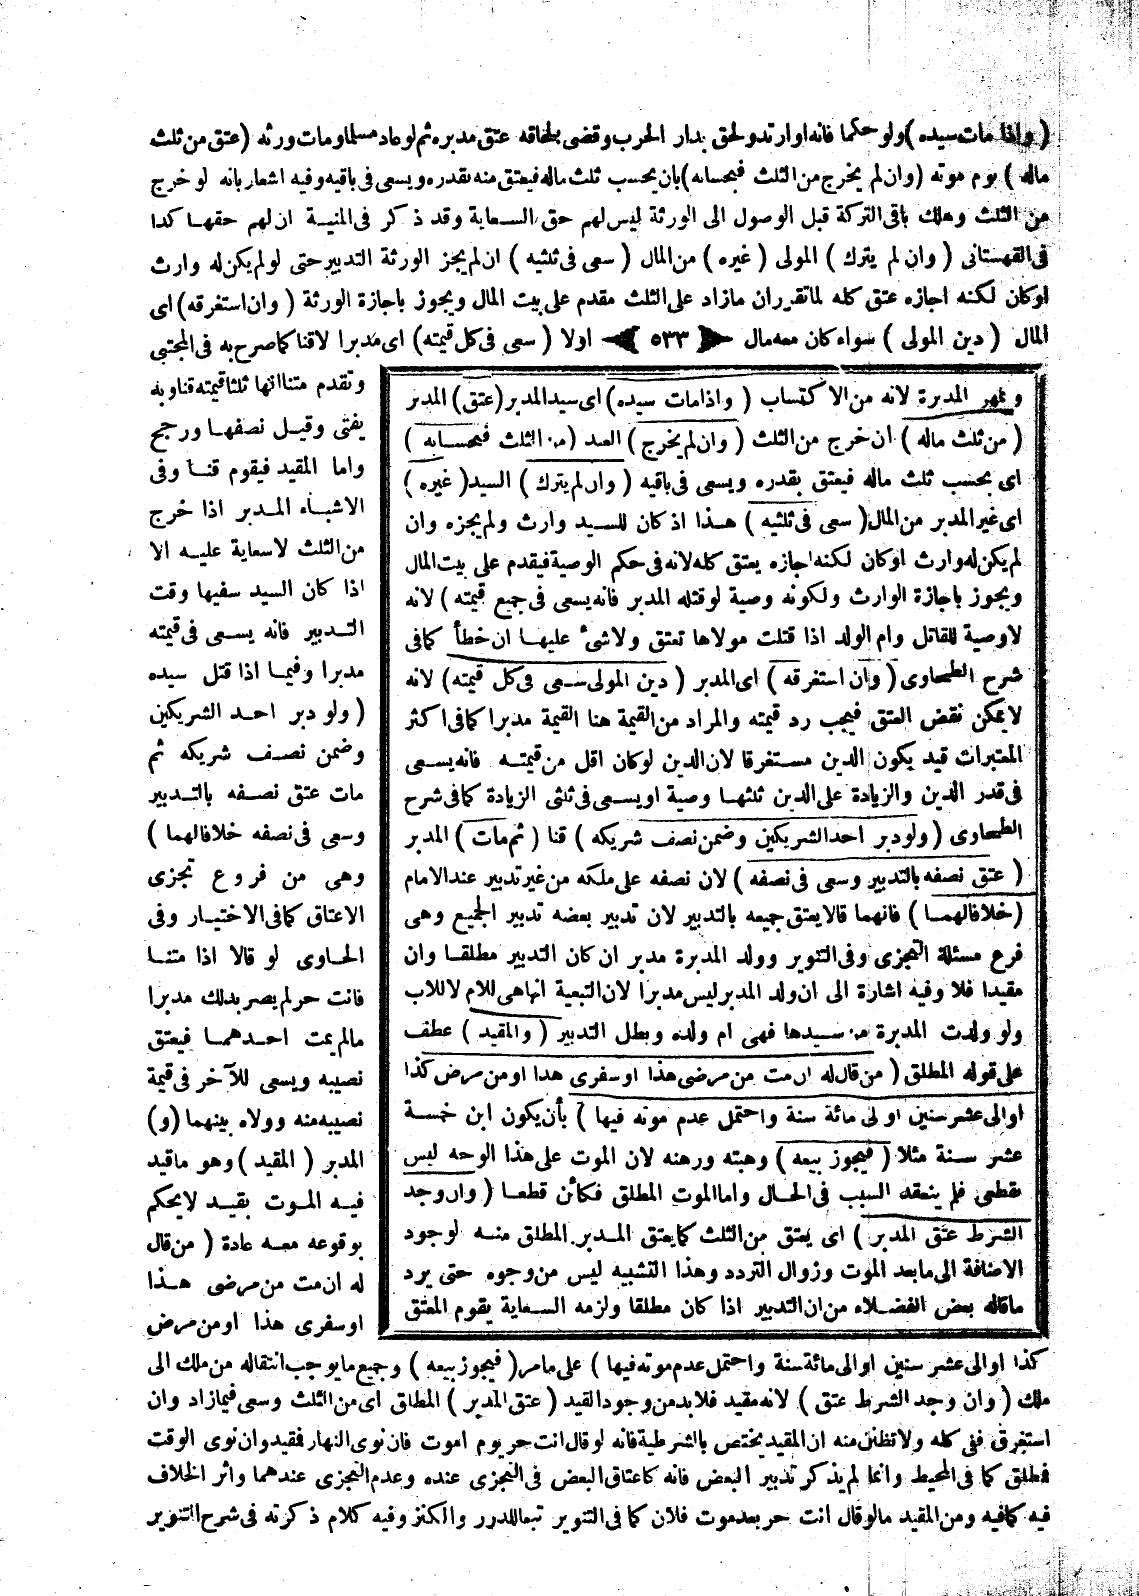 ( واذا مات سيده ) ولو حكما فانه لو ارتد ولحق بدار الحرب وقضى بلحاقه عتق مدبره ثم لو عاد مسلما ومات ورثه ( عتق من ثلث
ماله ) يوم موته ( وان لم يخرج من الثلث فبحسابه ) بان يحسب ثلث ماله فيعتق منه بقدره ويسعى فى باقيه وفيه اشعار بانه لو خرج
من الثلث وهلك باقى التركة قبل الوصول الى الورثة ليس لهم حق السعاية وقد ذكر فى المنية ان لهم حقها كذا
فى القهستانى ( وان لم يترك ) المولى ( غيره ) من المال ( سعى فى ثلثيه ) ان لم يجز الورثة التدبير حتى لو لم يكن له وارث
او كان لكنه اجازه عتق كله لما تقرر ان ما زاد على الثلث مقدم على بيت المال ويجوز باجازة الورثة ( وان استغرقه ) اى
المال ( دين المولى ) سواء كان معه مال ﴿ ٥٣٣ ﴾ اولا ( سعى فى كل قيمته ) اى مدبرا لاقنا كما صرح به فى المجتبى
وتقدم متنا انها ثلثا قيمته قنا وبه
يفتى وقيل نصفها ورجح
واما المقيد فيقوم قنا وفى
الاشباه المدبر اذا خرج
من الثلث لاسعاية عليه الا
اذا كان السيد سفيها وقت
التدبير فانه يسعى فى قيمته
مدبرا وفيما اذا قتل سيده
( ولو دبر احد الشريكين
وضمن نصف شريكه ثم
مات عتق نصفه بالتدبير
وسعى فى نصفه خلافالهما )
وهى من فروع تجزى
الاعتاق كما فى الاختيار وفى
الحاوى لو قالا اذا متنا
فانت حر لم يصر بذلك مدبرا
مالم يمت احدهما فيعتق
نصيبه ويسعى للآخر فى قيمة
نصيبه منه وولاه بينهما ( و )
المدبر ( المقيد ) وهو ما قيد
فيه الموت بقيد لايحكم
بوقوعه معه عادة ( من قال
له ان مت من مرضى هذا
او سفرى هذا او من مرض
ومهر المدبرة لانه من الاكتساب ( واذا مات سيده ) اى سيد المدبر ( عتق ) المدبر
( من ثلث ماله ) ان خرج من الثلث ( وان لم يخرج ) العبد ( من الثلث فبحسابه )
اى بحسب ثلث ماله فيعتق بقدره ويسعى فى باقيه ( وان لم يترك ) السيد ( غيره )
اى غير المدبر من المال ( سعى فى ثلثيه ) هذا اذ كان للسيد وارث ولم يجزه وان
لم يكن له وارث او كان لكنه اجازه يعتق كله لانه فى حكم الوصية فيقدم على بيت المال
ويجوز باجازة الوارث ولكونه وصية لو قتله المدبر فانه يسعى فى جميع قيمته ) لانه
لاوصية للقاتل وام الولد اذا قتلت مولاها تعتق ولاشئ عليها ان خطأ كما فى
شرح الطحاوى ( وان استغرقه ) اى المدبر ( دين المولى سعى فى كل قيمته ) لانه
لايمكن نقض العتق فيجب رد قيمته والمراد من القيمة هنا القيمة مدبرا كما فى اكثر
المعتبرات قيد بكون الدين مستغرقا لان الدين لو كان اقل من قيمته فانه يسعى
فى قدر الدين والزيادة على الدين ثلثها وصية او يسعى فى ثلثى الزيادة كما فى شرح
الطحاوى ( ولو دبر احد الشريكين وضمن نصف شريكه ) قنا ( ثم مات ) المدبر
( عتق نصفه بالتدبير وسعى فى نصفه ) لان نصفه على ملكه من غير تدبير عند الامام
( خلافالهما ) فانهما قالا يعتق جميعه بالتدبير لان تدبير بعضه تدبير الجميع وهى
فرع مسئلة التجزى وفى التنوير وولد المدبرة مدبر ان كان التدبير مطلقا وان
مقيدا فلا وفيه اشارة الى ان ولد المدبر ليس مدبرا لان التبعية انما هى للام لا للاب
ولو ولدت المدبرة من سيدها فهى ام ولده وبطل التدبير ( والمقيد ) عطف
على قوله المطلق ( من قال له ان مت من مرضى هذا او سفرى هذا او من مرض كذا
او الى عشر سنين او الى مائة سنة واحتمل عدم موته فيها ) بأن يكون ابن خمسة
عشر سنة مثلا ( فيجوز بيعه ) وهبته ورهنه لان الموت على هذا الوجه ليس
بقطعى فلم ينعقد السبب فى الحال واما الموت المطلق فكائن قطعا ( وان وجد
الشرط عتق المدبر ) اى يعتق من الثلث كما يعتق المدبر المطلق منه لوجود
الاضافة الى ما بعد الموت وزوال التردد وهذا التشبيه ليس من وجوه حتى يرد
ما قاله بعض الفضلاء من ان التدبير اذا كان مطلقا ولزمه السعاية يقوم المعتق
كذا او الى عشر سنين او الى مائة سنة واحتمل عدم موته فيها ) على مامر ( فيجوز بيعه ) وجميع ما يوجب انتقاله من ملك الى
ملك ( وان وجد الشرط عتق ) لانه مقيد فلا بد من وجود القيد ( عتق المدبر ) المطلق اى من الثلث وسعى فيما زاد وان
استغرق ففى كله ولا تظنن منه ان المقيد يختص بالشرطية فانه لو قال انت حر يوم اموت فان نوى النهار فمقيد وان نوى الوقت
فمطلق كما فى المحيط وانما لم يذكر تدبير البعض فانه كاعتاق البعض فى التجزى عنده وعدم التجزى عندهما واثر الخلاف
فيه كما فيه ومن المقيد مالو قال انت حر بعد موت فلان كما فى التنوير تبعا للدرر والكنز وفيه كلام ذكرته فى شرح التنوير